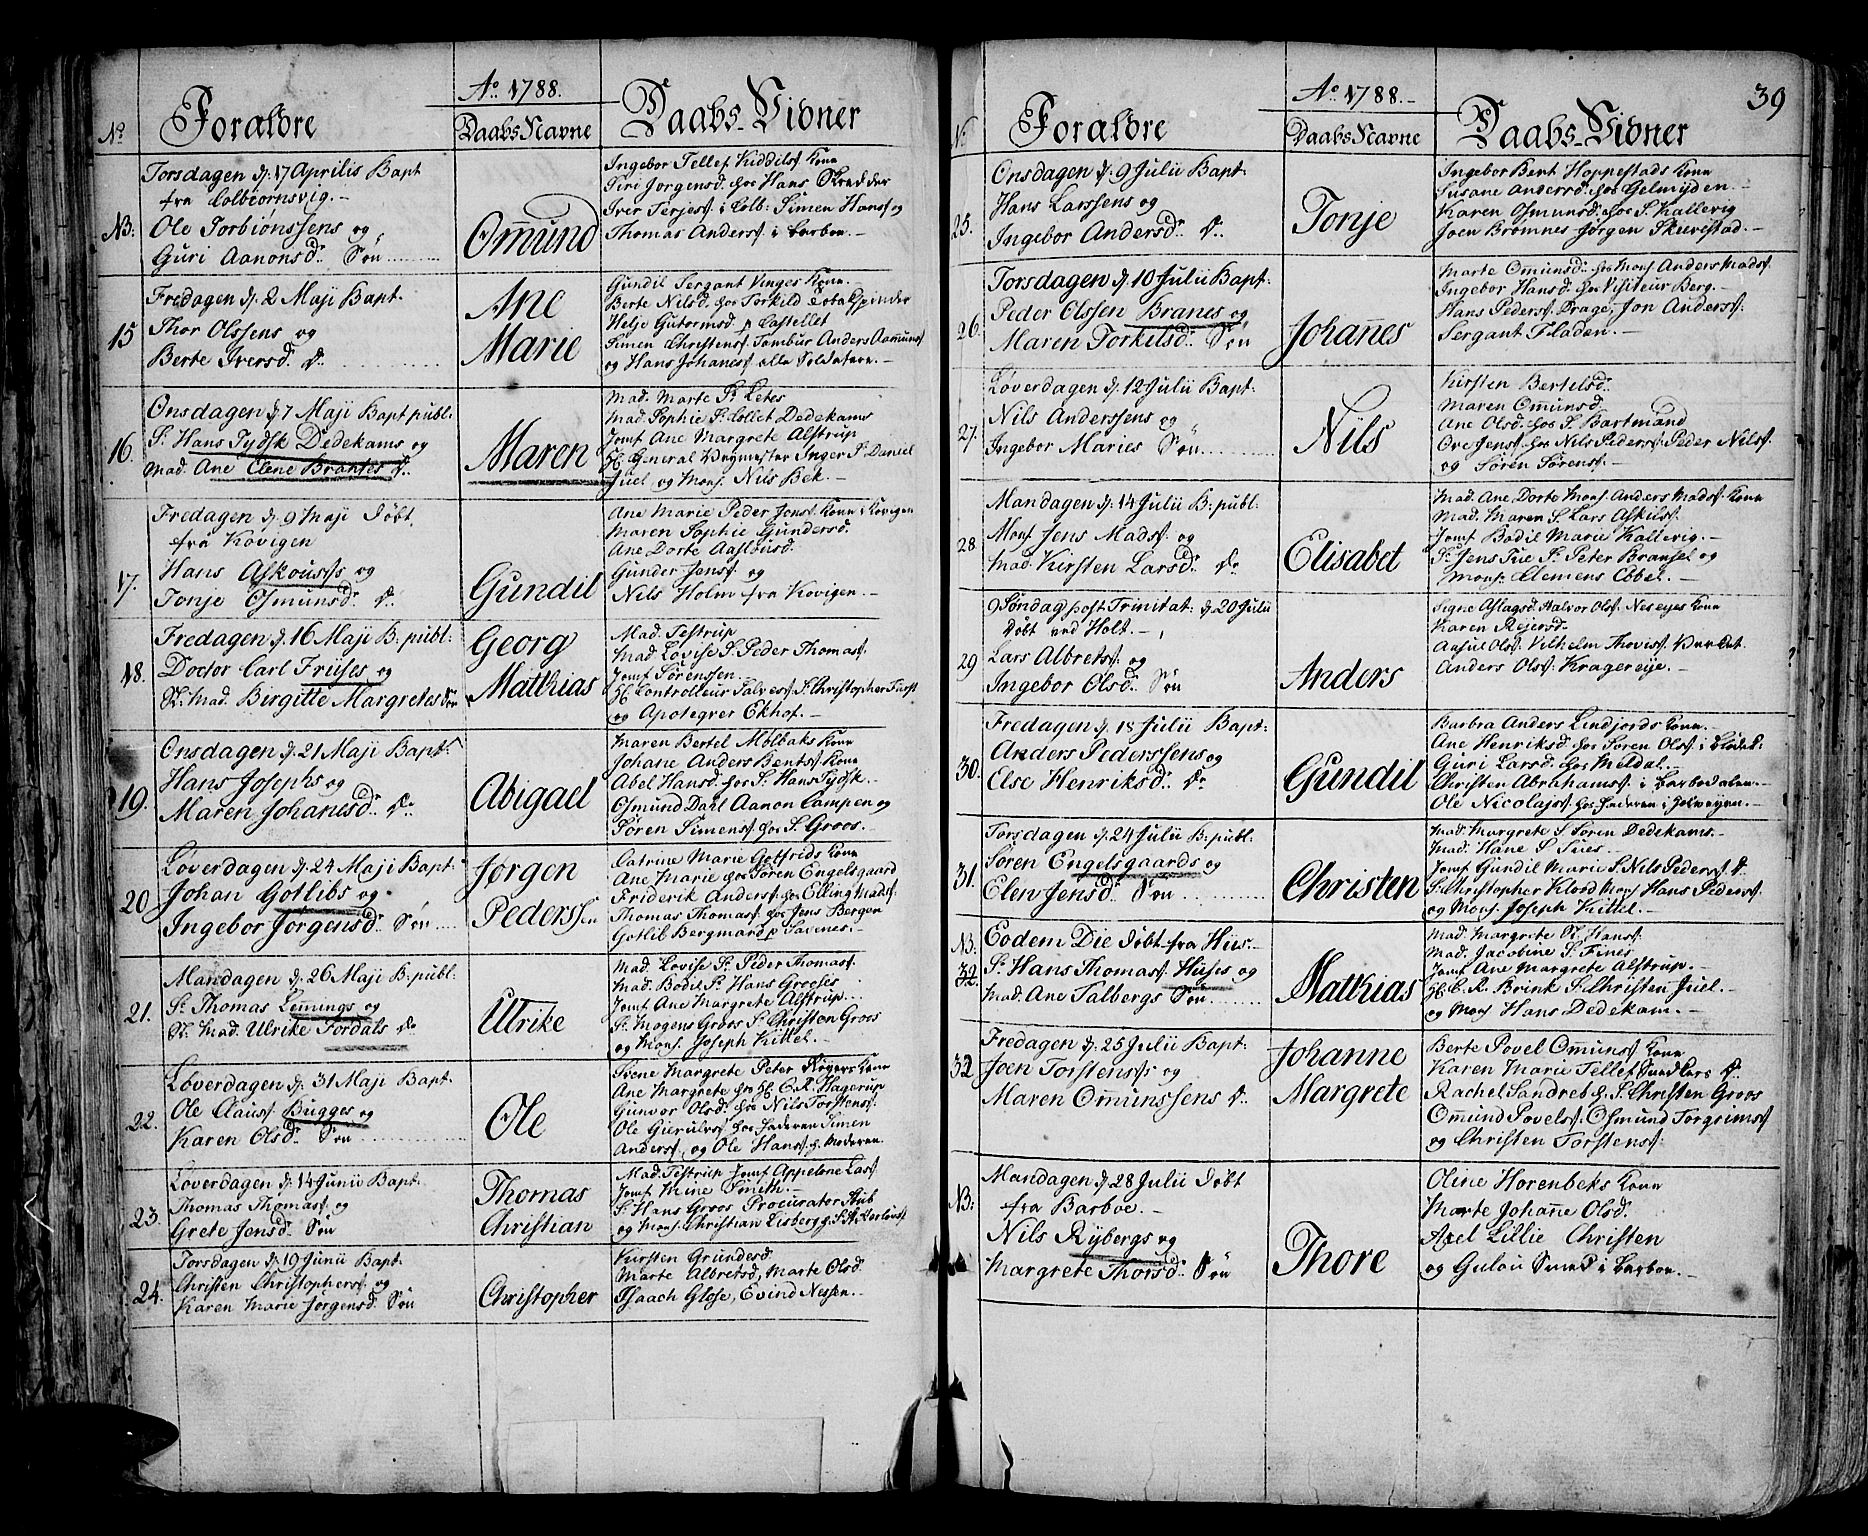 No.
Forældre
Ao. 1788.
Daabs Navne
Daabs-Vidner
NB:
Torsdagen d. 17 Aprilis Bapt
fra Colbeornsvig.-
Ole Torbiønssens og
Guri Aanonsdr. Søn
Omund
Ingebor Tellef Kiddilsf. Kone
Siri Jorgensd. hos Hans Skredder
Iver Terjesf. i Colb: Simen Hansf og
Thomas Andersf i Barboe.-
15
Fredagen d. 2 Maji Bapt.
Thor Olssens og
Berte Iversdr. Dr.
Ane
Marie
Gundil Sergant Vinges Kone.
Berte Nilsd. hos Torkild Tobakspinder
Helje Gutormsd p Castellet
Simen Christensf. Tambur Anders Aamunsf
og Hans Johanesf alle Soldatere.-
16.
Onsdagen d. 7 Maji Bapt publ:
Sr. Hans Tydsk Dedekams og
Mad. Ane Elene Brantes Dr.
Maren
Mad. Marte Sr. Letes
Mad Sophie Sr. Collet Dedekams
Jomf Ane Margrete Alstrup
Hr. General Inger Sr. Daniel
Juel og Monf. Nils Bek.-
17.
Fredagen d. 9 Maji Døbt
fra Kovigen
Hans Askouss og
Tonje Osmunsdr. Dr.
Gundil
Ane Marie Peder Jensf. Kone i Kovigen
Maren Sophie Gundersd.
Ane Dorte
Gunder Jensf. og
Nils Holm fra Kovigen.-
18.
Fredagen d. 16 Maji B. publ:
Doctor Carl Friises og
Sl. Mad. Birgitte Margretes Søn
Georg
Matthias
Mad. Testrup
Mad Lovise Sr. Peder Thomasf.
Jomf Sørenssen.
Hr. Controlleur Talves Sr. Christopher Fürst
og Apoteqver Ekhof.-
19.
Onsdagen d. 21 Maji Bapt.
Hans Josephs og
Maren Johanesdr. Dr.
Abigael
Maren Bertel Molbaks Kone
Johane Anders Bentsf. Kone
Abel Hansd. hos Sr. Hans Tydsk.-
Osmund Dahl Aanon Campen og
Søren Simensf hos Sr. Groos.-
20
Løverdagen d. 24 Maji Bapt:
Johan Gotlibs og
Ingebor Jørgensdr. Søn
Jørgen
Pederssen
Catrine Marie Gotfrids Kone
Ane Marie hos Søren Engelsgaard
Friderik Andersf. hos Elling Madsf.
Thomas Thomasf. hos Jens Bergen
Gotlib Bergman p Savnes.-
21.
Mandagen d. 26 Maji B. publ.
Sr. Thomas Lemmings og
Sl. Mad. Ulrike Fordals Dr.
Ulrike
Mad. Lovise Sr. Peder Thomasf.
Mad. Bodil Sr. Hans Grooses
Jomf Ane Margrete Alstrup
Sr. Mogens Groos Sr. Christen Groos
og Monf. Joseph Kittel.-
22.
Løverdagen d. 31 Maji Bapt.
Ole Clausf. Bugges og
Karen Olsdr. Søn
Ole
Svene Margrete Peter Røyers Kone
Ane Margrete hos Hr. C. R. Hagerup
Gunvor Olsd. hos Nils Torstensf.
Ole Gierulvsf hos Faderen Simen
Andersf. og Ole Hansf.
23.
Løverdagen d. 14 Junii Bapt.
Thomas Thomasf. og
Grete Jensdr. Søn
Thomas
Christian
Mad. Testrup Jomf Appelone Lasf.
Jomf Mine Smith.-
Sr. Hans Groos Procurator Stub
og Monf. Christian Lisberg
24.
Torsdagen d. 19 Junii Bapt.
Christen Christophersf. og
Karen Marie Jørgensd. Søn
Christopher
Kirsten Grundesd.
Marte Albretsd, Marte Olsd.
Isaach Glose, Evind Nessen.-
39
No.
Forældre
Ao. 1788.-
Daabs Navne
Daabs-Vidner
25.
Onsdagen d. 9 Julii Bapt.
Hans Larssens og
Ingebor Andersdr. Dr.
Tonje
Ingebor Bent Hoppestads Kone
Susane Andersd. hos Gelmyden.-
Karen Osmunsd. hos S. Kallevig
Joen Bromnes Jørgen Skuvestad.-
26.
Torsdagen d. 10 Julii Bapt:
Peder Olssen Branes og
Maren Torkilsdr. Søn
Johannes
Marte Omunsdr. hos Monf Anders Madsf.
Ingebor Hansd. hos Visiteur Berg.-
Hans Pedersf. Drage, Jon Andersf.
Sergant Fladen.-
27.
Løverdagen d. 12 Julii Bapt:
Nils Anderssens og
Ingebor Maries Søn
Nils
Kirsten Bertelsd.
Maren Omunsd.
Ane Olsd. hos S. Bartmand
Ove Jensf. hos Nils Pedersf: Peder Nilsf.
og Søren Sørensf.-
28.
Mandagen d. 14 Julii B: publ:
Monf Jens Madsf. og
Mad. Kirsten Larsdr. Dr.
Elisabet
Mad. Ane Dorte Monf. Anders Madsf. Kone
Mad. Maren S. Lars Askilsf.
Jomf Bodil Marie Kallevig.-
Sr. Jens Tue Sr. Peter Bransel og
Monf. Clemens Ebbel.-
29
9 Søndag post Trinitat: d. 20 Julii
Døbt ved Holt.-
Lars Albretsf. og
Ingebor Olsdr. Søn
Anders
Signe Aslagsd. Halvor Olsf. Neseyes Kone
Karen Rejersd.
Aasul Olsf. Vilhelm
Anders Olsf. Kragereje.-
30.
Fredagen d. 18 Julii Bapt:
Anders Pederssens og
Else Henriksdr. Dr.
Gundil
Barbra Anders Lindjords Kone.
Ane Henriksd. hos Søren Olsf.
Guri Larsd. hos Meldal.-
Christen Abrahamsf. i Barbodalen.-
Ole Nicolajsf. hos Faderen
31.
Torsdagen d. 24 Julii B: publ.
Søren Engelsgaards og
Elen Jensdr. Søn
Christen
Mad. Margrete S. Søren Dedekams.-
Mad. Hane S. Tues.-
Jomf Gundil Marie S. Nils Pedersf. Dr.
Sr. Christopher Klo Monf Hans Pedersf.
og Monf. Joseph Kittel.-
NB.
32.
Eodem Die Døbt fra Hiis.-
Sr. Hans Thomasf. Hiises og
Mad. Ane Talbergs Søn
Matthias
Mad. Margrete Ol. Hansf.
Mad. Jacobine S. Fines
Jomf Ane Margrete Alstrup.-
Hr. C. R. Brink Sr. Christen Juel.-
og Monf Hans Dedekam.-
32
Fredagen d. 25 Julii Bapt:
Joen Torstensf og
Maren Omunssens Dr.
Johanne
Margrete
Berte Povel Omunsf Kone
Karen Marie Tellef Sund Lars Dr.
Rachel Sandret h. S. Christen Groos
Omund Povelsf. Osmund Torgrimsf
og Christen Torstensf.
NB:
Mandagen d. 28 Julii Døbt
fra Barboe.-
Nils Rybergs og
Margrete Thorsdr. Søn
Thore
Oline Horenbeks Kone
Marte Johanne Olsd.
Axel Lillie Christen
og Gulov Smed i Barboe.-